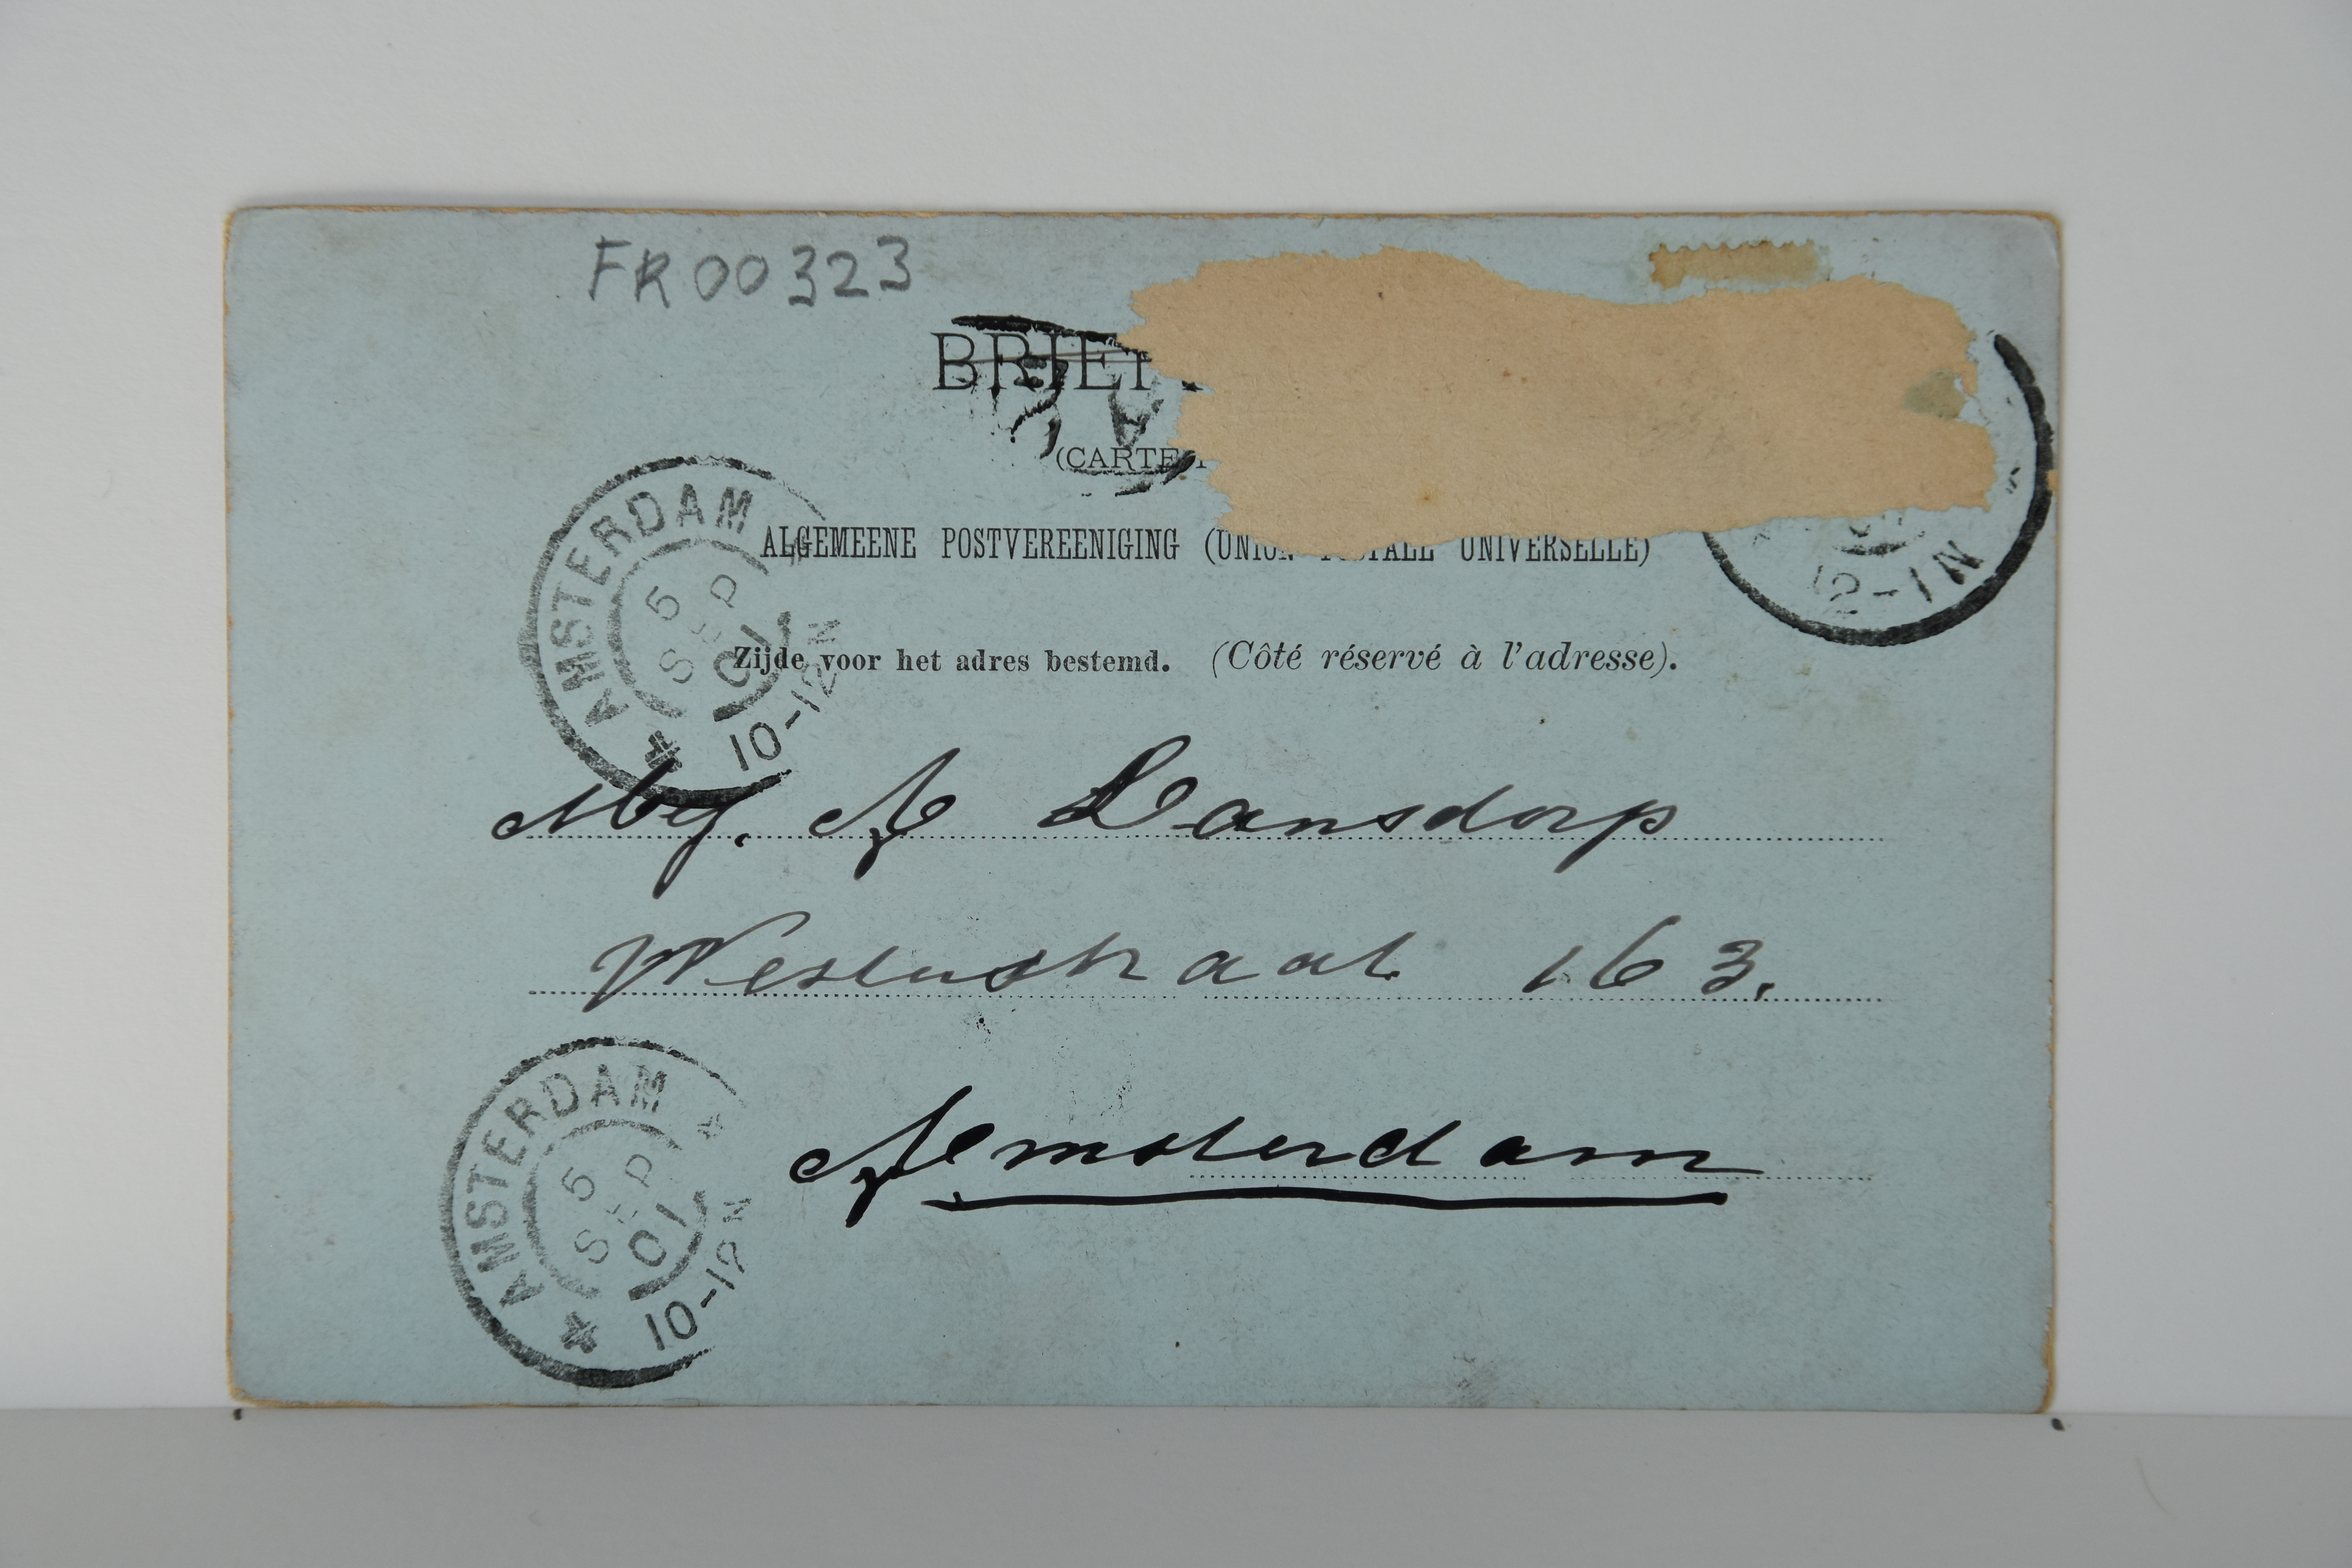 FR 00323
BRIEF
(CARTE
ALGEMEENE POSTVEREENIGING (UNION POSTALE UNIVERSELLE)
Zijde voor het adres bestemd. (Côté réservé à l'adresse).
AMSTERDAM
5 SEP 01
10-12N
12-1N
Mej. A Lansdorp
Westerstraat 163.
Amsterdam
AMSTERDAM
5 SEP 01
10-12N